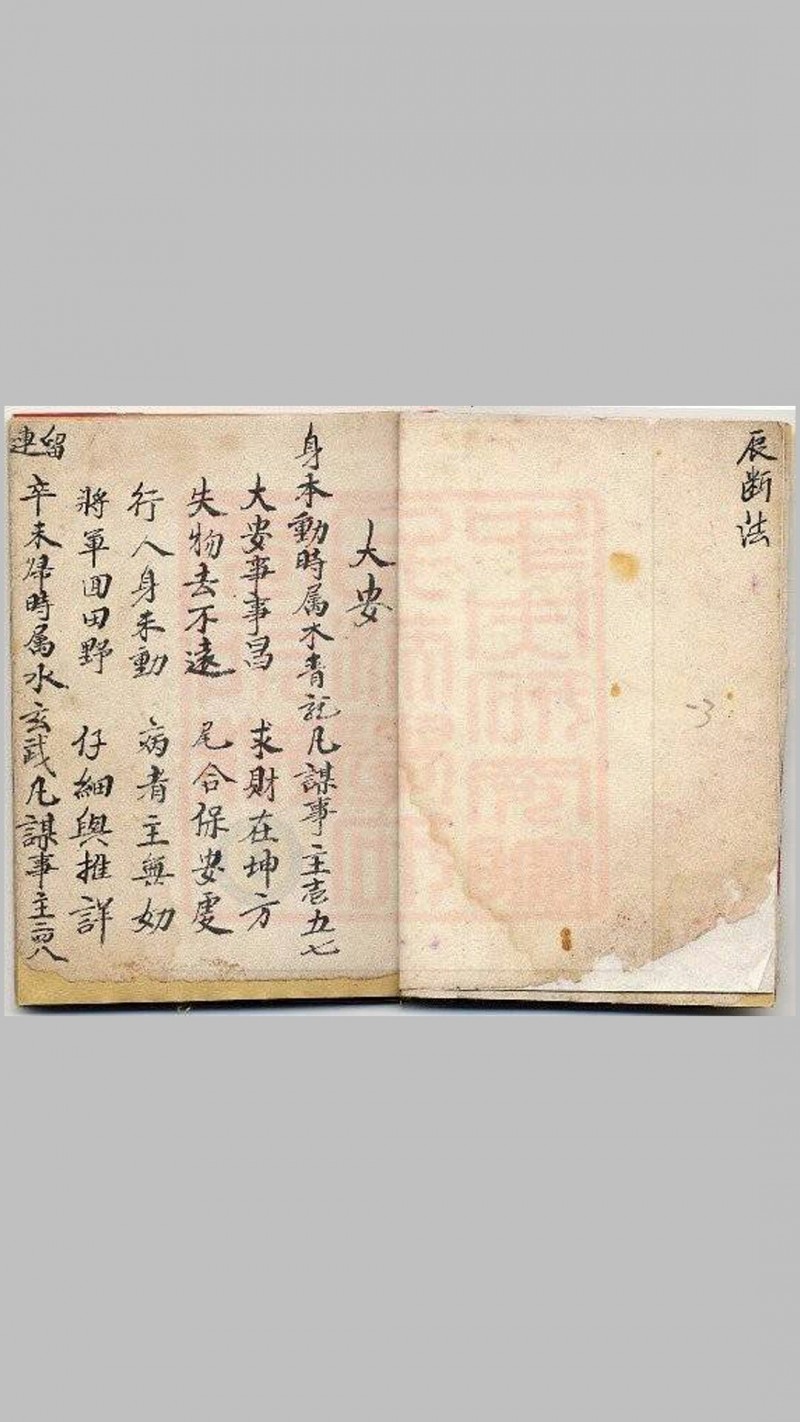 辰断法
-3
大安
身未動時属木青龍凡謀事主壱五七
大安事事昌 求財在坤方
失物去不遠 尾合保安𠁅
行人身未動 病者主無妨
將軍囬田野 仔細與推詳
留連
卒未㷌時属水玄武凡謀事主二四八